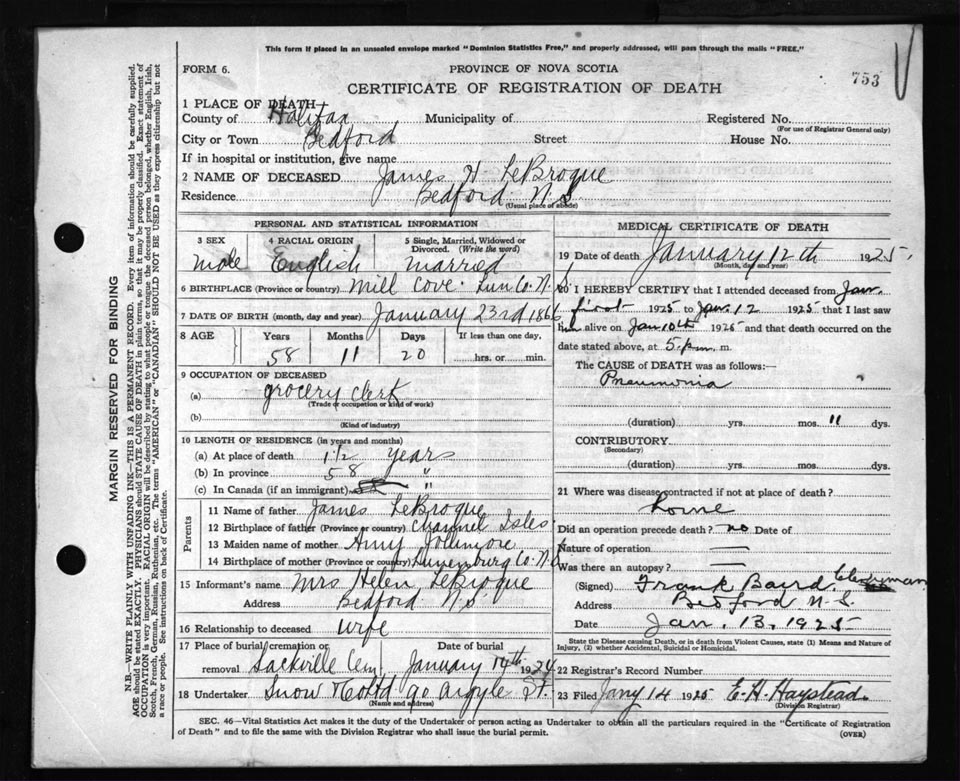 This form if placed in an unsealed envelope marked "Dominion Statistics Free," and properly addressed, will pass through the mails "FREE."
FORM 6.
PROVINCE OF NOVA SCOTIA
753
CERTIFICATE OF REGISTRATION OF DEATH
1 PLACE OF DEATH
County of Halifax Municipality of Registered No.
(For use of Registrar General only)
City or Town Bedford Street House No.
If in hospital or institution, give name
2 NAME OF DECEASED James H LeBroque
Residence Bedford N.S
(Usual place of abode)
PERSONAL AND STATISTICAL INFORMATION
3 SEX 4 RACIAL ORIGIN 5 Single, Married, Widowed or Divorced. (Write the word)
Male English married
6 BIRTHPLACE (Province or country) Mill Cove Lun Co. N.S
7 DATE OF BIRTH (month, day and year) January 23rd 1866
8 AGE Years Months Days If less than one day,
58 11 20 hrs. or min.
9 OCCUPATION OF DECEASED
(a) grocery clerk
(Trade or occupation or kind of work)
(b)
(Kind of industry)
10 LENGTH OF RESIDENCE (in years and months)
(a) At place of death 1 1/2 years
(b) In province 58 "
(c) In Canada (if an immigrant) "
Parents
11 Name of father James LeBroque
12 Birthplace of father (Province or country) Channel Isles
13 Maiden name of mother Amy Jollimore
14 Birthplace of mother (Province or country) Lunenburg Co. N.S
15 Informant's name Mrs Helen LeBroque
Address Bedford N.S
16 Relationship to deceased wife
17 Place of burial, cremation or Date of burial
removal Sackville Cem. January 14th 1924
18 Undertaker Snow & Co Ltd 90 Argyle St.
(Name and address)
MEDICAL CERTIFICATE OF DEATH
19 Date of death January 12th 1925.
(Month, day and year)
20 I HEREBY CERTIFY that I attended deceased from Jan.
first 1925 to Jan. 12 1925 that I last saw
him alive on Jan 10th 1925 and that death occurred on
date stated above, at 5 p.m. m.
The CAUSE OF DEATH was as follows:
Pneumonia
(duration) yrs. mos. 11 dys.
CONTRIBUTORY
(Secondary)
(duration) yrs. mos. dys.
21 Where was disease contracted if not at place of death?
Home
Did an operation precede death? no Date of
Nature of operation —
Was there an autopsy? —
(Signed) Frank Baird Clergyman
Address Bedford N.S.
Date Jan. 13, 1925
State the Disease causing Death, or in death from Violent Causes, state (1) Means and Nature of Injury, (2) whether Accidental, Suicidal or Homicidal.
22 Registrar's Record Number
23 Filed Jany 14 1925 E. H. Haystead
(Division Registrar)
SEC. 46—Vital Statistics Act makes it the duty of the Undertaker or person acting as Undertaker to obtain all the particulars required in the "Certificate of Registration
of Death" and to file the same with the Division Registrar who shall issue the burial permit.
(OVER)
MARGIN RESERVED FOR BINDING
N.B.—WRITE PLAINLY WITH UNFADING INK—THIS IS A PERMANENT RECORD. Every item of information should be carefully supplied.
AGE should be stated EXACTLY. PHYSICIANS should STATE CAUSE OF DEATH in plain terms, so that it may be properly classified. Exact statement of
OCCUPATION is very important. RACIAL ORIGIN will be described by stating to what people or tongue the deceased person belonged, whether English, Irish,
Scotch, French, German, Russian, Ruthenian, etc. The terms "AMERICAN" or "CANADIAN" SHOULD NOT BE USED as they express citizenship but not
a race or people. See instructions on back of Certificate.